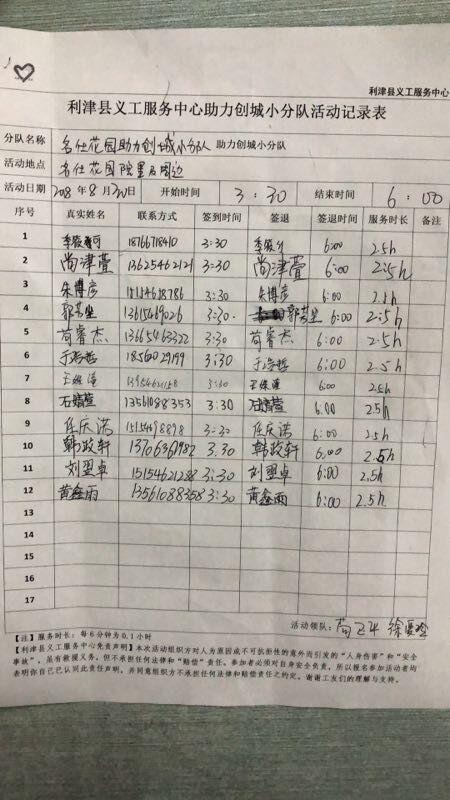 利津县义工服务中心
利津县义工服务中心助力创城小分队活动记录表
分队名称 名仕花园助力创城小分队 助力创城小分队
活动地点 名仕花园院里及周边
活动日期 2018年8月20日 开始时间 3:30 结束时间 6:00
序号 真实姓名 联系方式 签到时间 签退 签退时间 服务时长 备注
1 18766718410 3:30 6:00 2.5h
2 尚津萱 13625462121 3:30 尚津萱 6:00 2.5h
3 朱博彦 15154628786 3:30 朱博彦 6:00 2.5h
4 郭芳坐 13615469026 3:30 郭芳坐 6:00 2.5h
5 苟睿杰 13665463322 3:30 苟睿杰 6:00 2.5h
6 于浩哲 18560029199 3:30 于浩哲 6:00 2.5h
7 3:30 6:00 2.5h
8 石婧萱 13561088353 3:30 石婧萱 6:00 2.5h
9 任庆诺 15154698898 3:30 任庆诺 6:00 2.5h
10 韩政轩 13706367982 3.30 韩政轩 6:00 2.5h
11 刘曌卓 15154621288 3:30 刘曌卓 6:00 2.5h
12 黄鑫雨 13561088358 3:30 黄鑫雨 6:00 2.5h
13
14
15
16
17
活动领队:
【注】服务时长:每6分钟为0.1小时
【利津县义工服务中心免责声明】本次活动组织方对人为原因或不可抗拒性的意外而引发的“人身伤害”和“安全
事故”,虽有救援义务,但不承担任何法律和“赔偿”责任。参加者必须对自身安全负责,所以报名参加活动者均
表明你自己已认同此责任声明,并同意组织方不承担任何法律和赔偿责任之约定。谢谢工友们的理解与支持。